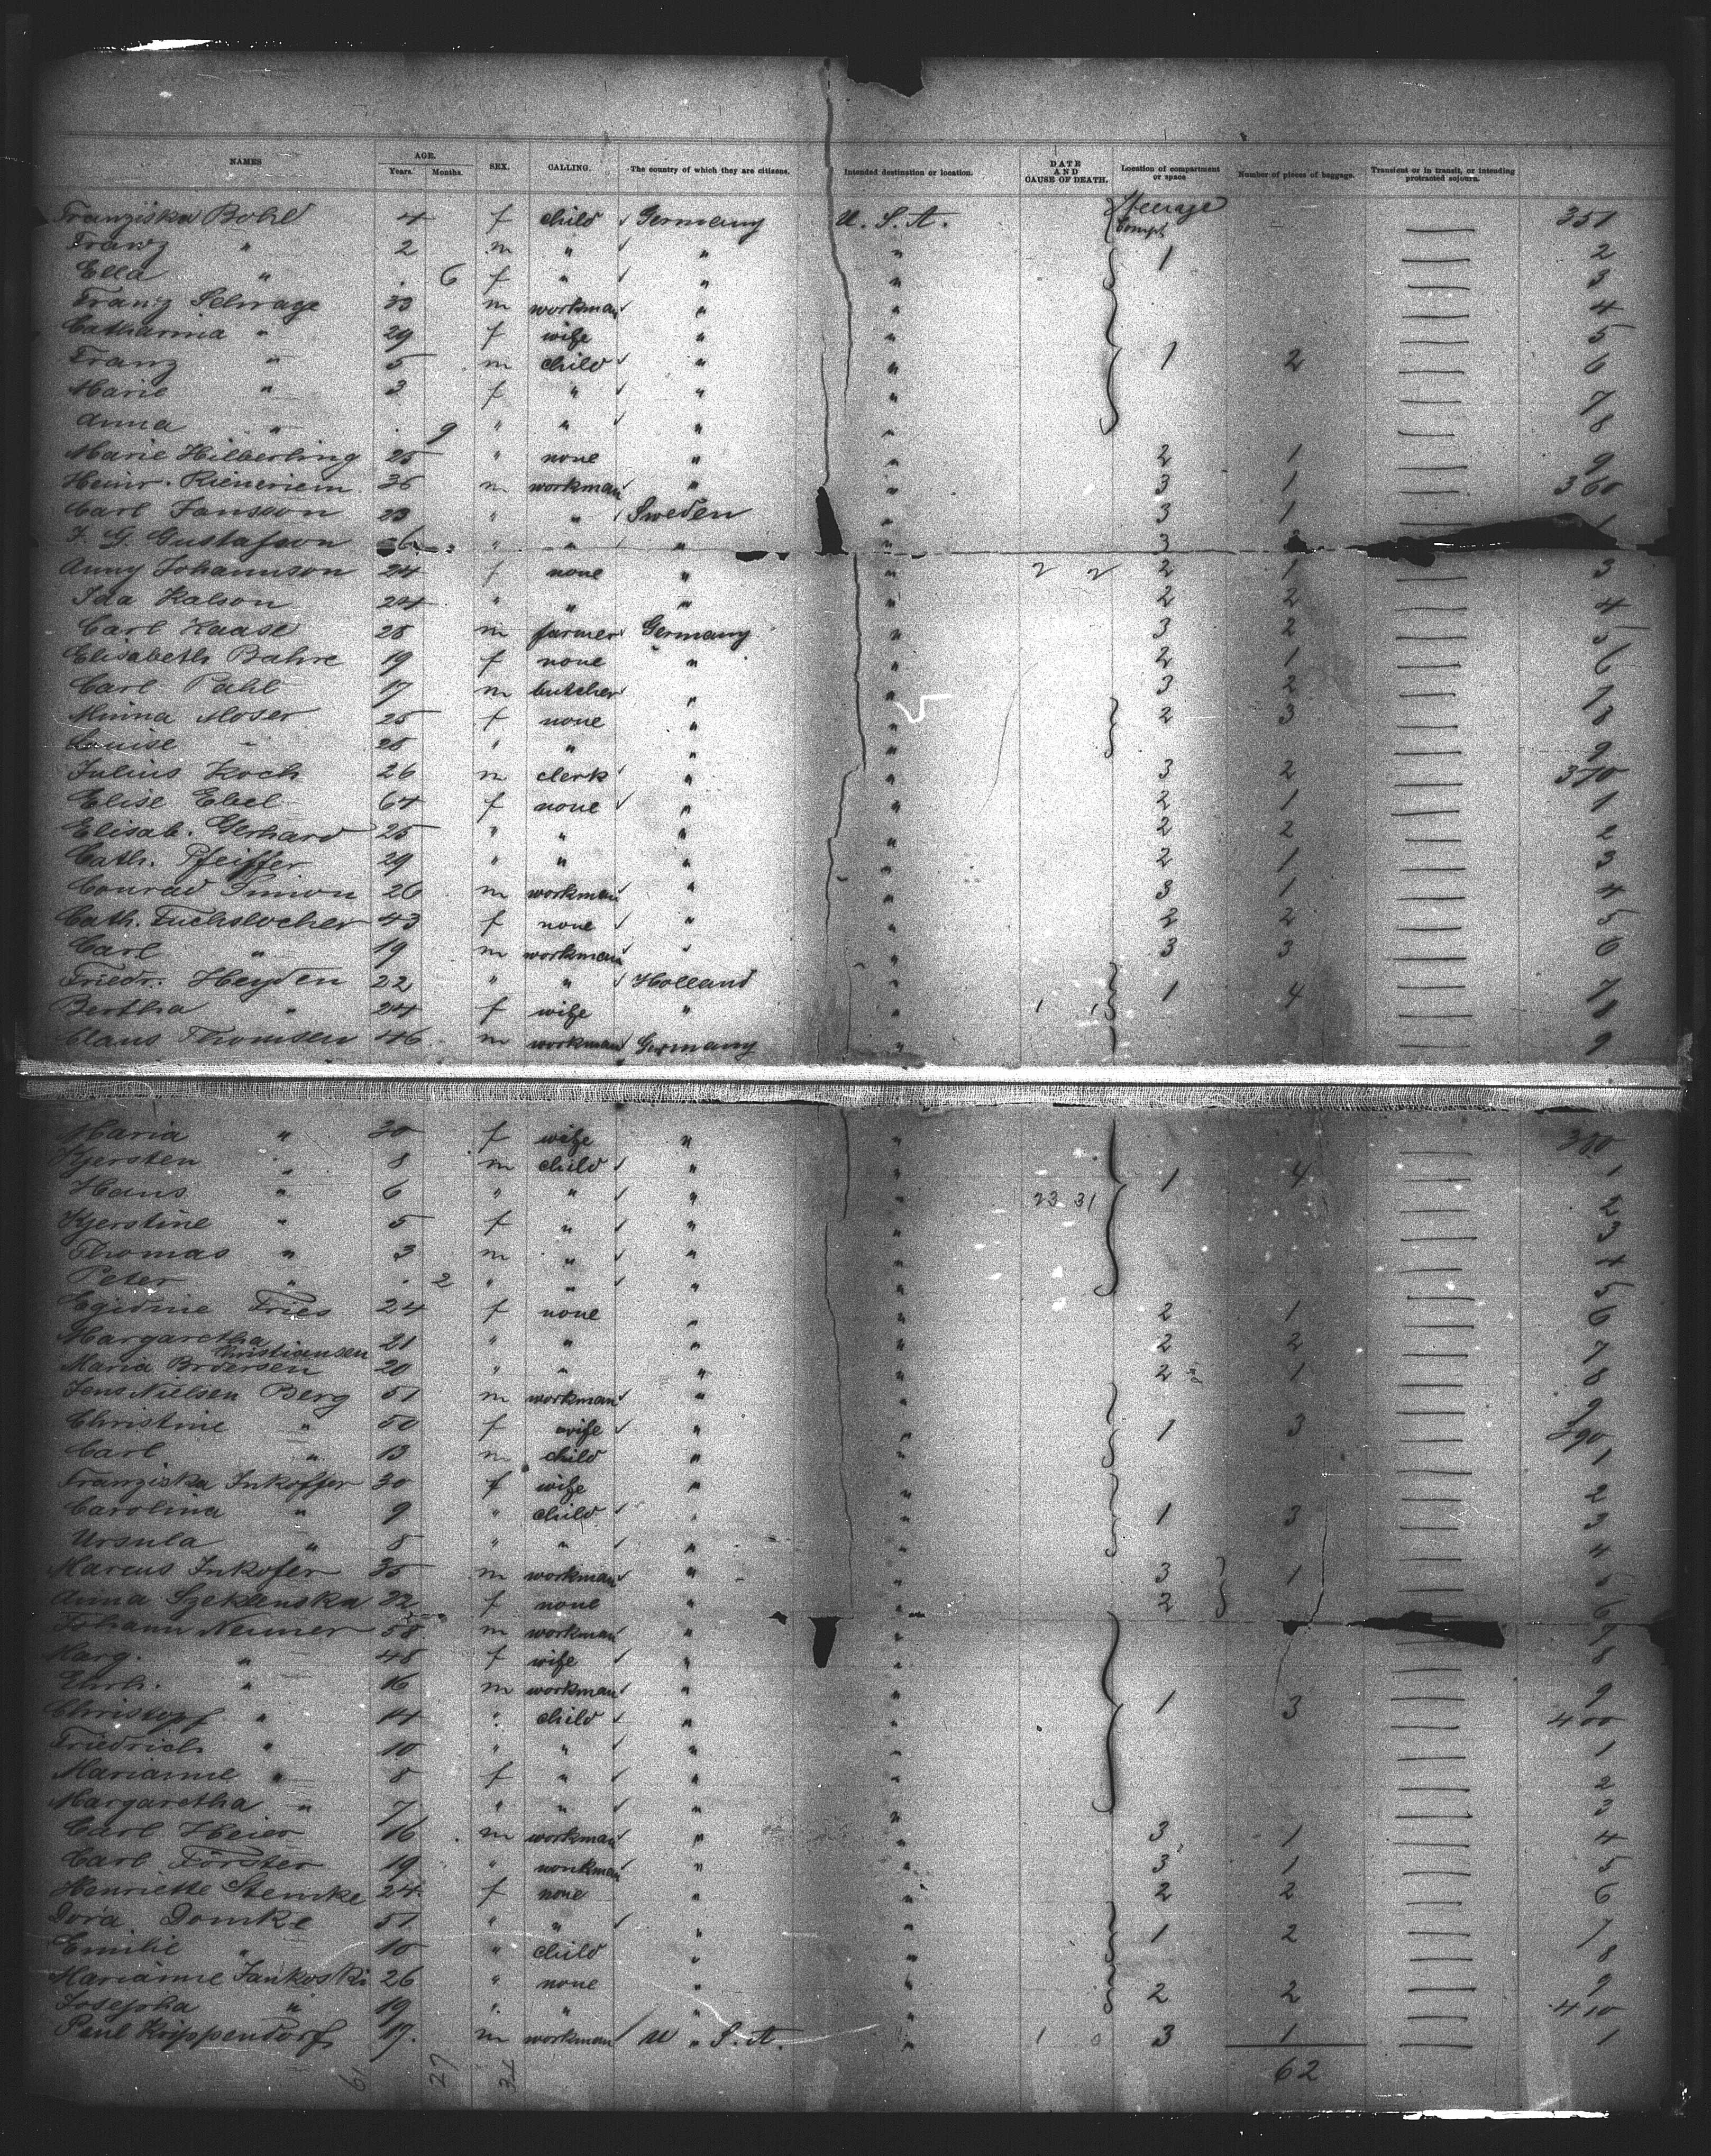 NAMES AGE. Years. Months. SEX. CALLING. The country of which they are citizens. Intended destination or location. DATE AND CAUSE OF DEATH. Location of compartment or space Number of pieces of baggage. Transient or in transit, or intending protracted sojourn.
Franziska Bohl 4 f child Germany U. S. A. Steerage Compt 351
Franz " 2 m " " " 1 2
Ella " . 6 f " " " 3
Franz Schrage 33 m workman " " 4
Catharina " 29 f wife " " 5
Franz " 5 m child " " 1 2 6
Marie " 3 f " " " 7
Anna " . 9 " " " " 8
Marie Hilberling 25 " none " " 2 1 9
Heinr. Rieneriem 36 m workman " " 3 1 360
Carl Jansson 23 " " Sweden " 3 1 1
J. G. Gustafson " " " " 3
Anny Johannson 24 f none " " 2 2 2 1 3
Ida Kalson 24 " " " " 2 2 4
Carl Haase 28 m farmer Germany " 3 2 5
Elisabeth Bahre 19 f none " " 2 1 6
Carl Pahl 17 m butcher " " 3 2 7
Minna Moser 25 f none " " 2 3 8
Louise " 28 " " " " 9
Julius Koch 26 m clerk " " 3 2 370
Elise Ebel 64 f none " " 2 1 1
Elisab. Gerhard 25 " " " " 2 2 2
Cath. Pfeiffer 29 " " " " 2 1 3
Conrad Simon 26 m workman " " 3 1 4
Cath. Fuchslocher 43 f none " " 2 2 5
Carl " 19 m workman " " 3 3 6
Friedr. Heyden 22 " " Holland " 1 4 7
Bertha " 24 f wife " " 1 1 8
Claus Thomsen 46 m workman Germany " 9
Maria " 30 f wife " " 380
Kjersten " 8 m child " " 1 4 1
Hans " 6 " " " " 23 31 2
Kjerstine " 5 f " " " 3
Thomas " 3 m " " " 4
Peter " . 2 " " " " 5
Egidine Fries 24 f none " " 2 1 6
Margaretha Christiansen 21 " " " " 2 2 7
Maria Brodersen 20 " " " " 2 1 8
Jens Nielsen Berg 51 m workman " " 9
Christine " 50 f wife " " 1 3 390
Carl " 13 m child " " 1
Franziska Inkoffer 30 f wife " " 2
Carolina " 9 " child " " 1 3 3
Ursula " 8 " " " " 4
Marcus Inkofer 35 m workman " " 3 1 5
Anna Szeklenska 22 f none " " 2 6
Johann Neuner 58 m workman " " 7
Marg. " 48 f wife " " 8
Ehrh. " 16 m workman " " 9
Christopf " 14 " child " " 1 3 400
Friedrich " 10 " " " " 1
Marianne " 8 f " " " 2
Margaretha " 7 " " " " 3
Carl Heier 16 m workman " " 3 1 4
Carl Förster 19 " workman " " 3 1 5
Henriette Stemke 24 f none " " 2 2 6
Dora Domke 51 " " " " 1 2 7
Emilie " 10 " child " " 8
Marianne Jankoski 26 " none " " 2 2 9
Josepha " 19 " " " " 410
Paul Krippendorf 17. m workman U. S. A. " 1 0 3 1 1
61 27 34 62